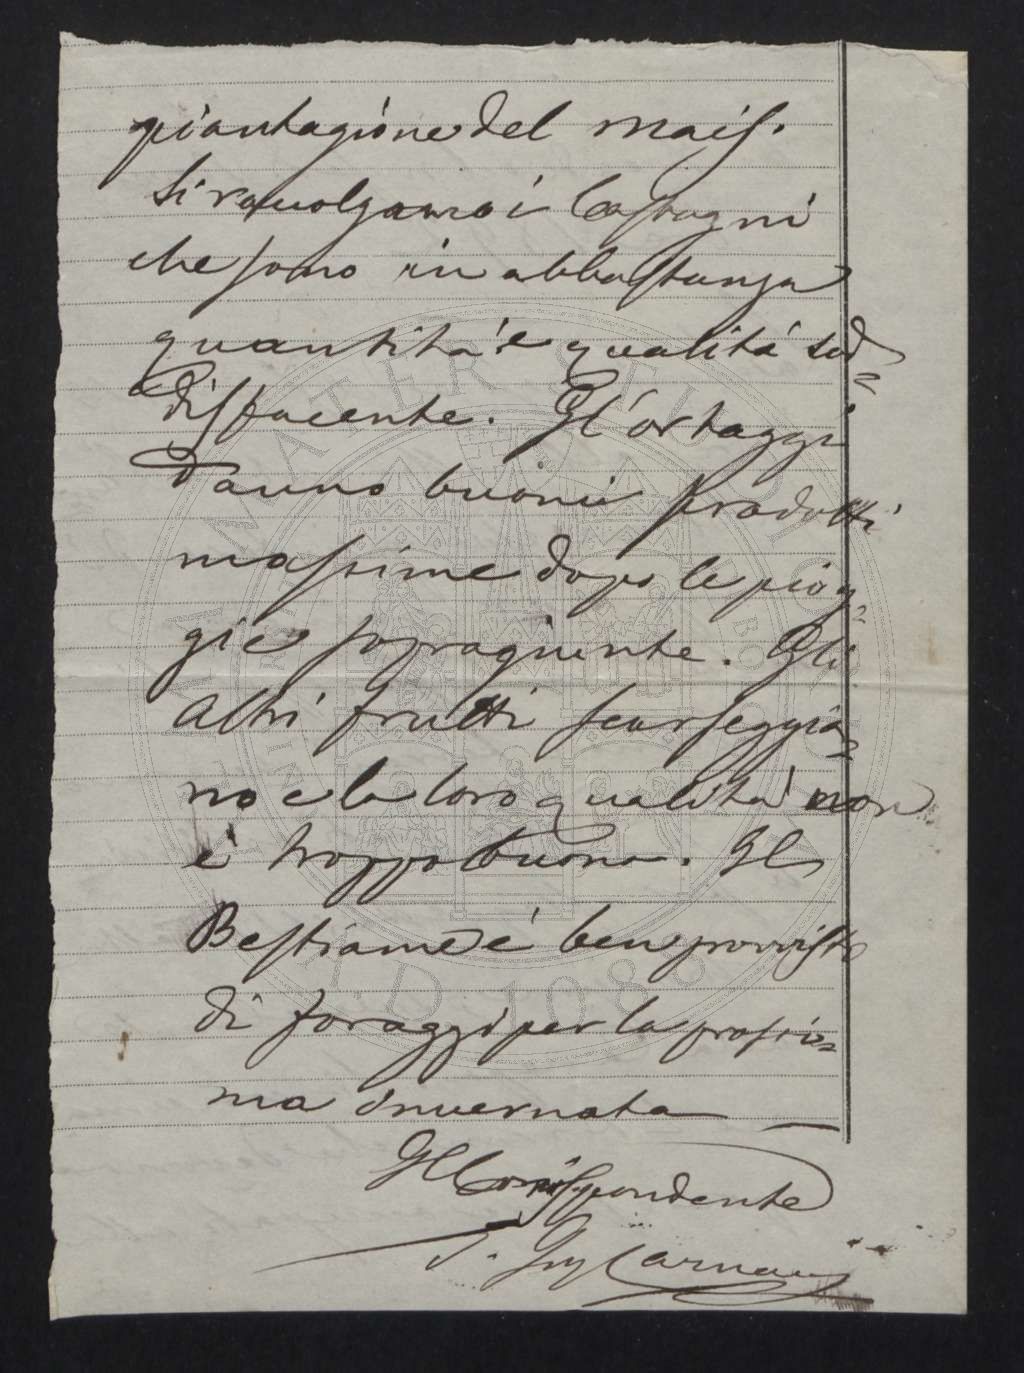 piantagione del mais.
Si ravvolgano i Castagni
che sono in abbastanza
quantità e qualità sod=
disfacente. Gl'ortaggi
danno buoni prodotti
massime dopo le piog=
gie sopragiunte. Gli
altri frutti scarseggia=
no e la loro qualità non
è troppo buona. Il
Bestiame è ben provvisto
di foraggi per la prossi=
ma invernata
Il Corrispondente
ALMA MATER STUDIORUM
A.D. 1088